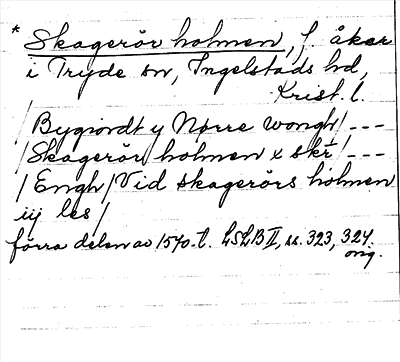 * Skagerör holmen, f. åker
i Tryde sn, Ingelstads hd,
Krist. l.
/Bygiordt y Nørre wongh/---
/Skagerör holmen x skr̄/---
/Engh/Vid skagerörs holmen
iij les/
förra delen av 1570-t. LSLB II, ss. 323, 324.
orig.